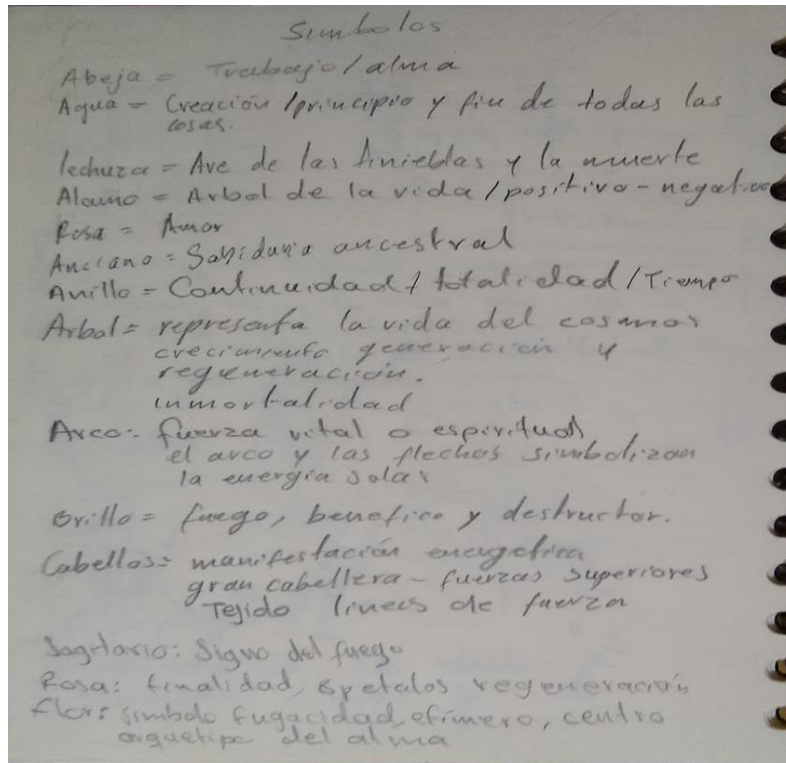 Simbolos
Abeja = Trabajo/alma
Agua = Creación/principio y fin de todas las
cosas.
lechuza = Ave de las tinieblas y la muerte
Alamo = Arbol de la vida/positivo-negativo
Rosa = Amor
Anciano = Sabiduria ancestral
Anillo = Continuidad/totalidad/Tiempo
Arbol = representa la vida del cosmos
crecimiento generación y
regeneración.
inmortalidad
Arco: fuerza vital o espiritual
el arco y las flechas simbolizan
la energia solar
Brillo = fuego, benefico y destructor.
Cabellos = manifestación energetica
gran cabellera - fuerzas superiores
Tejido lineas de fuerza
Sagitario: Signo del fuego
Rosa: finalidad, 8 petalos regeneración
flor: simbolo fugacidad, efimero, centro
arquetipo del alma